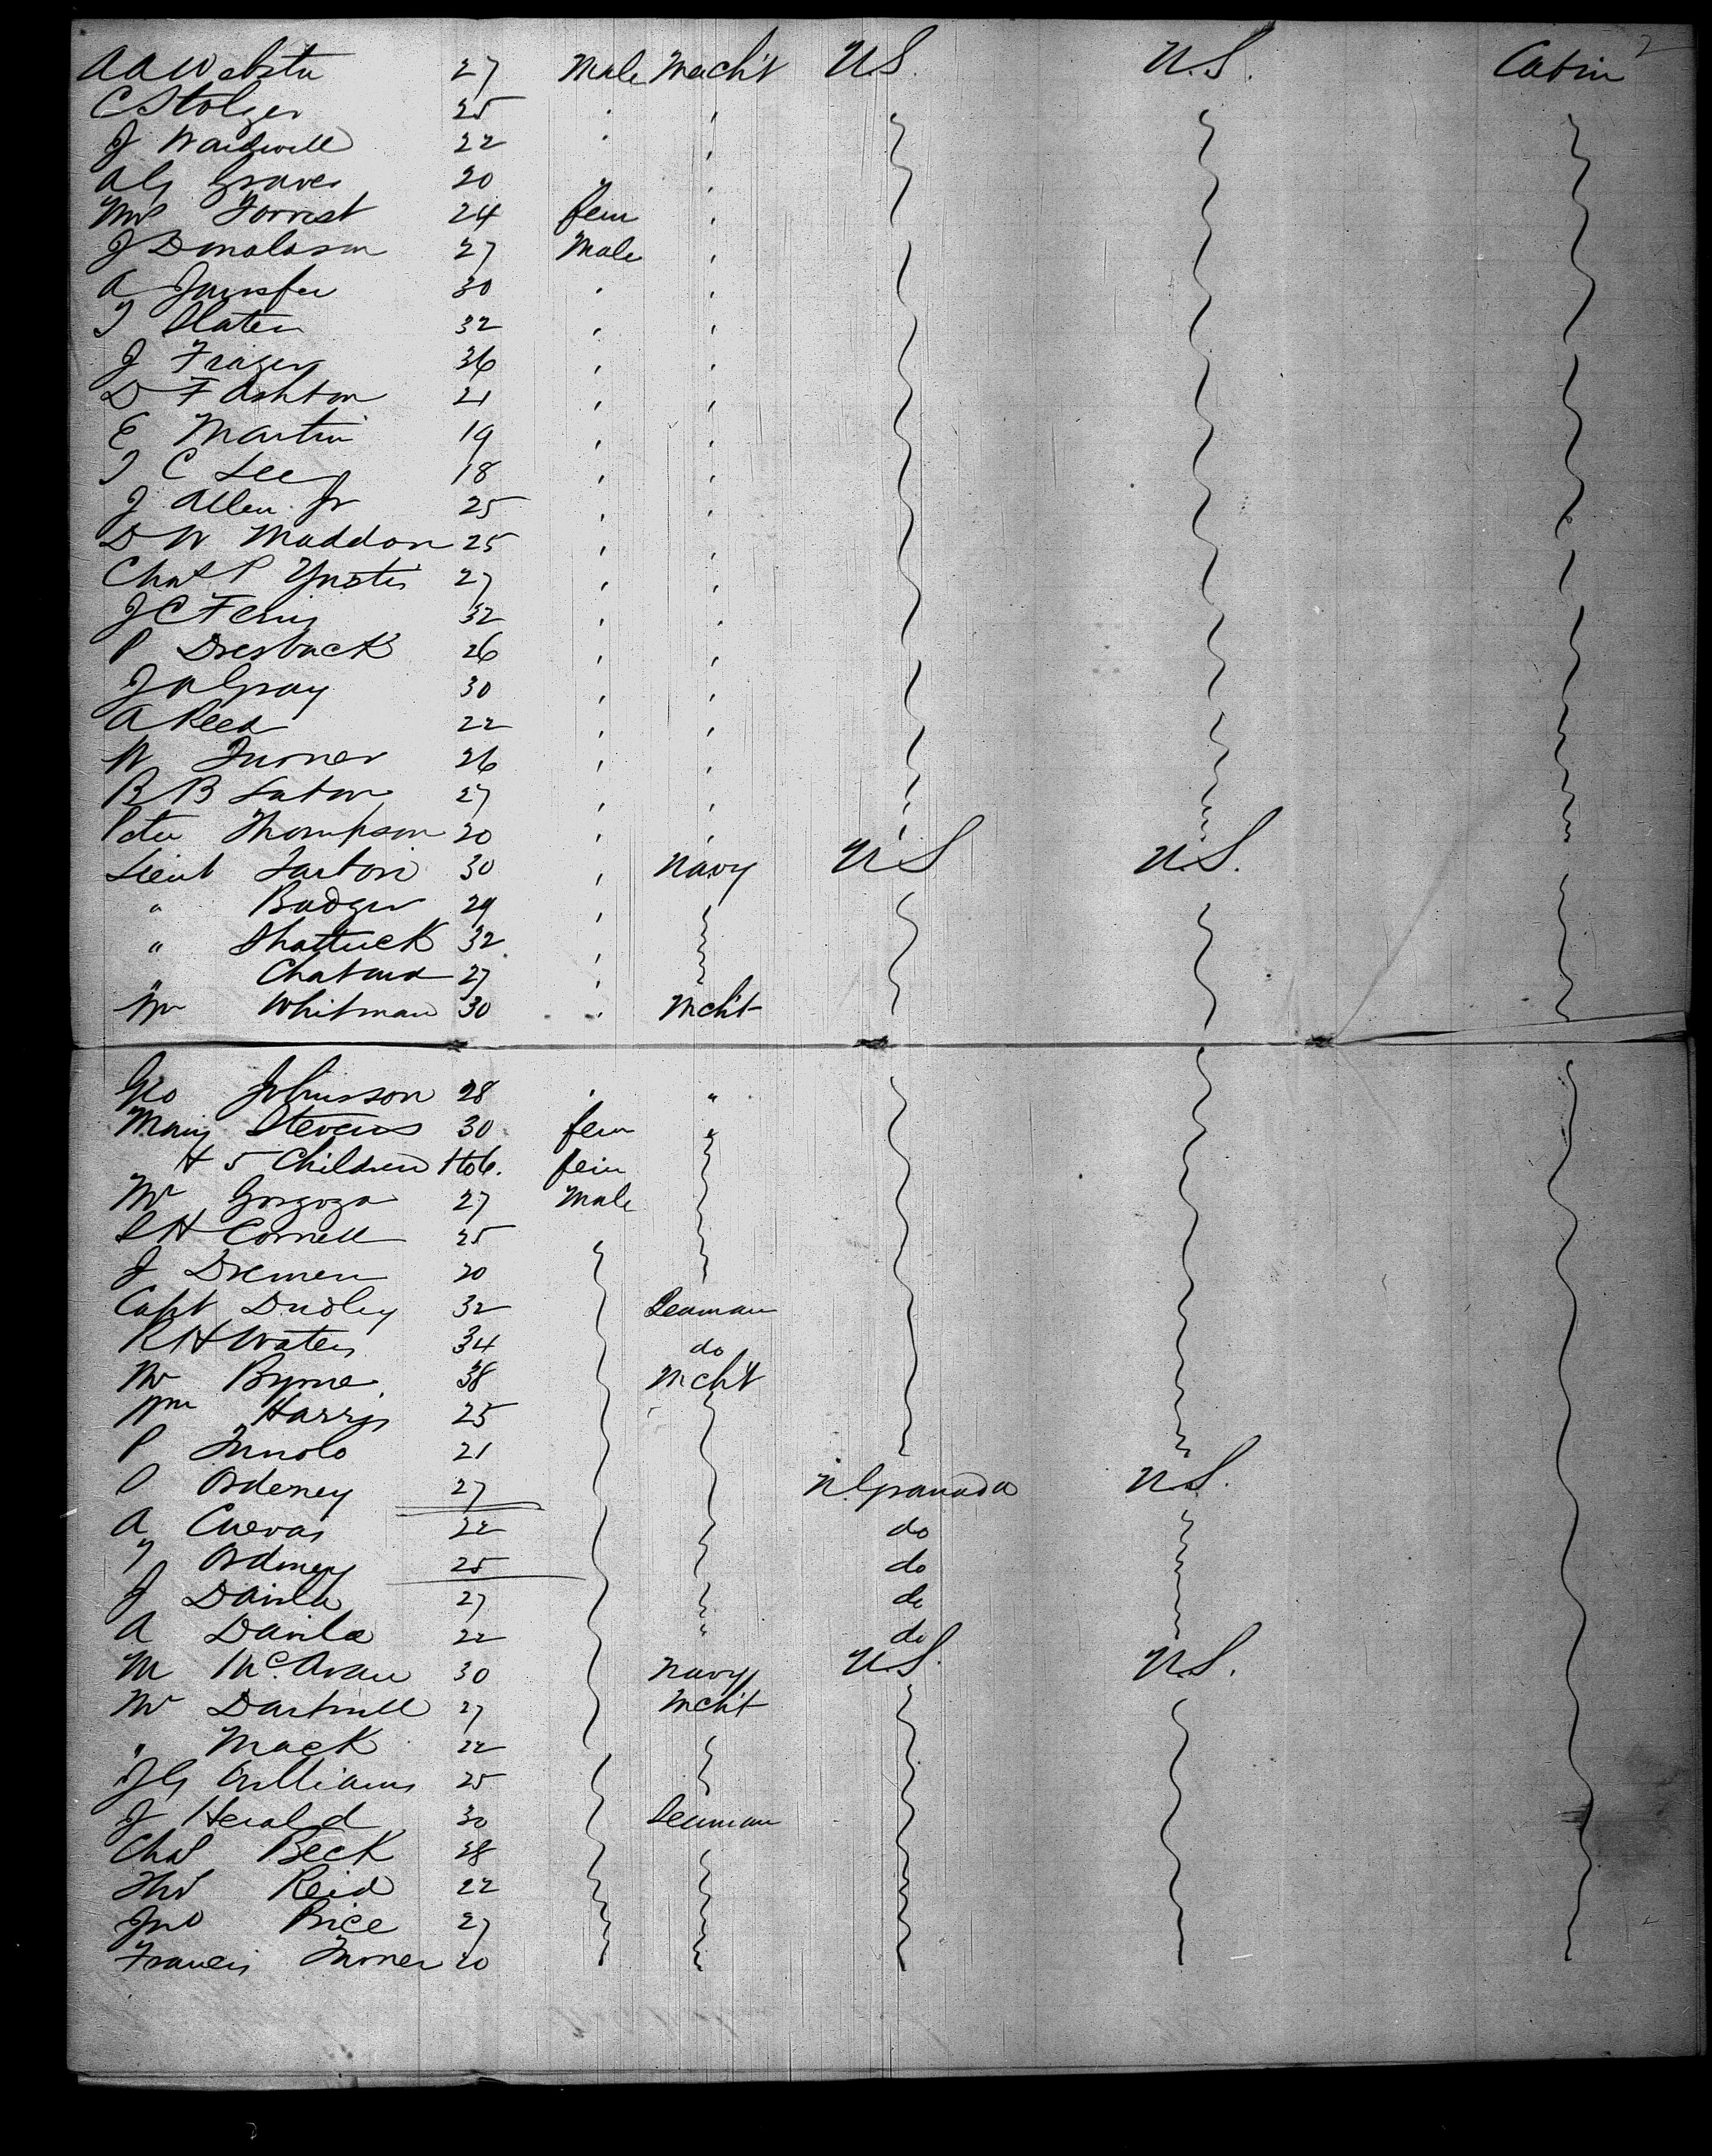 2
A A Webster 27 Male Mach't U.S. U.S. Cabin
C Stolzer 25
J Wardwell 22
A G Graves 20
Mrs Forrest 24 fem
J Donaldson 27 Male
A 30
T Slater 32
J Frazer 36
D F Ashton 21
E Martin 19
T C Lee 18
J Allen Jr 25
D W Maddon 25
Chas P 27
J C Ferris 32
P Dresback 26
J A Gray 30
A Reed 22
W Turner 26
B B 27
Peter Thompson 20
Lieut 30 Navy U S U.S.
" Badger 29
" Shattuck 32
" Chatard 27
Mr Whitman 30 Mch't
Geo Johnson 28 "
Mary Stevens 30 fem "
& 5 Children 1 to 6. fem
Mr Gorgoza 27 Male
S H Cornell 25
J 20
Capt Dudley 32 Seaman
R H Waters 34 do
Mr Byrne 38 Mch't
Wm Harris 25
P 21
O Ordeney 27 N. Granada U.S.
A Cuevas 22 do
T Ordeney 25 do
J Davila 27 do
A Davila 22 " do
M McAvan 30 Navy U.S. U.S.
Mr Dartnell 27 Mch't
" Mack 22
J G Williams 25
J Herald 30 Seaman
Chas Beck 28
Thos Reid 22
Jno Price 27
Francis Turner 20